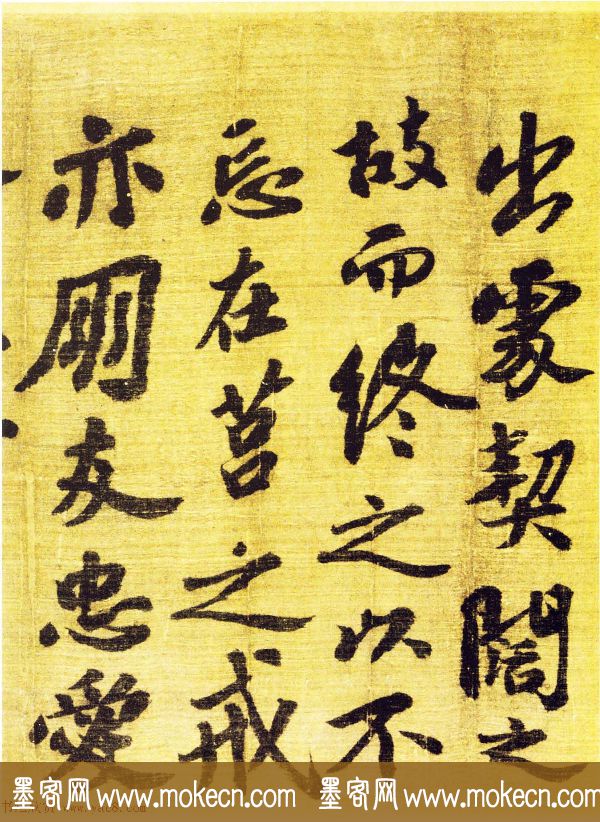 出處契闊之
故而終之以不
忘在莒之戒
亦朋友忠愛
墨客网 www.mokecn.com 墨客网 www.mokecn.com